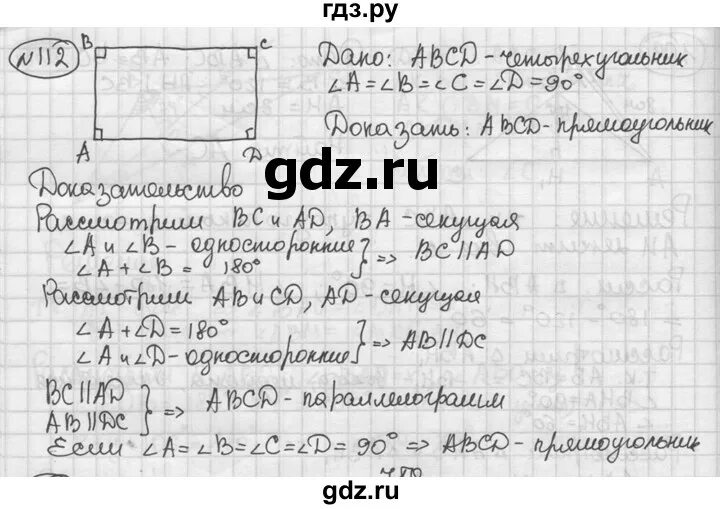 гдз.ру
№112
B
C
A
D
Дано: ABCD-четырехугольник
∠A=∠B=∠C=∠D=90°
Доказать: ABCD-прямоугольник
gdz.ru
Доказательство
Рассмотрим BC и AD, BA-секущая
∠A и ∠B- односторонние
∠A+∠B= 180°
} => BC||AD
Рассмотрим AB и CD, AD-секущая
∠A+∠D=180°
∠A и ∠D-односторонние
} => AB||DC
BC||AD
AB||DC
} => ABCD-параллелограмм
Если ∠A=∠B=∠C=∠D=90° => ABCD-прямоугольник
gdz.ru